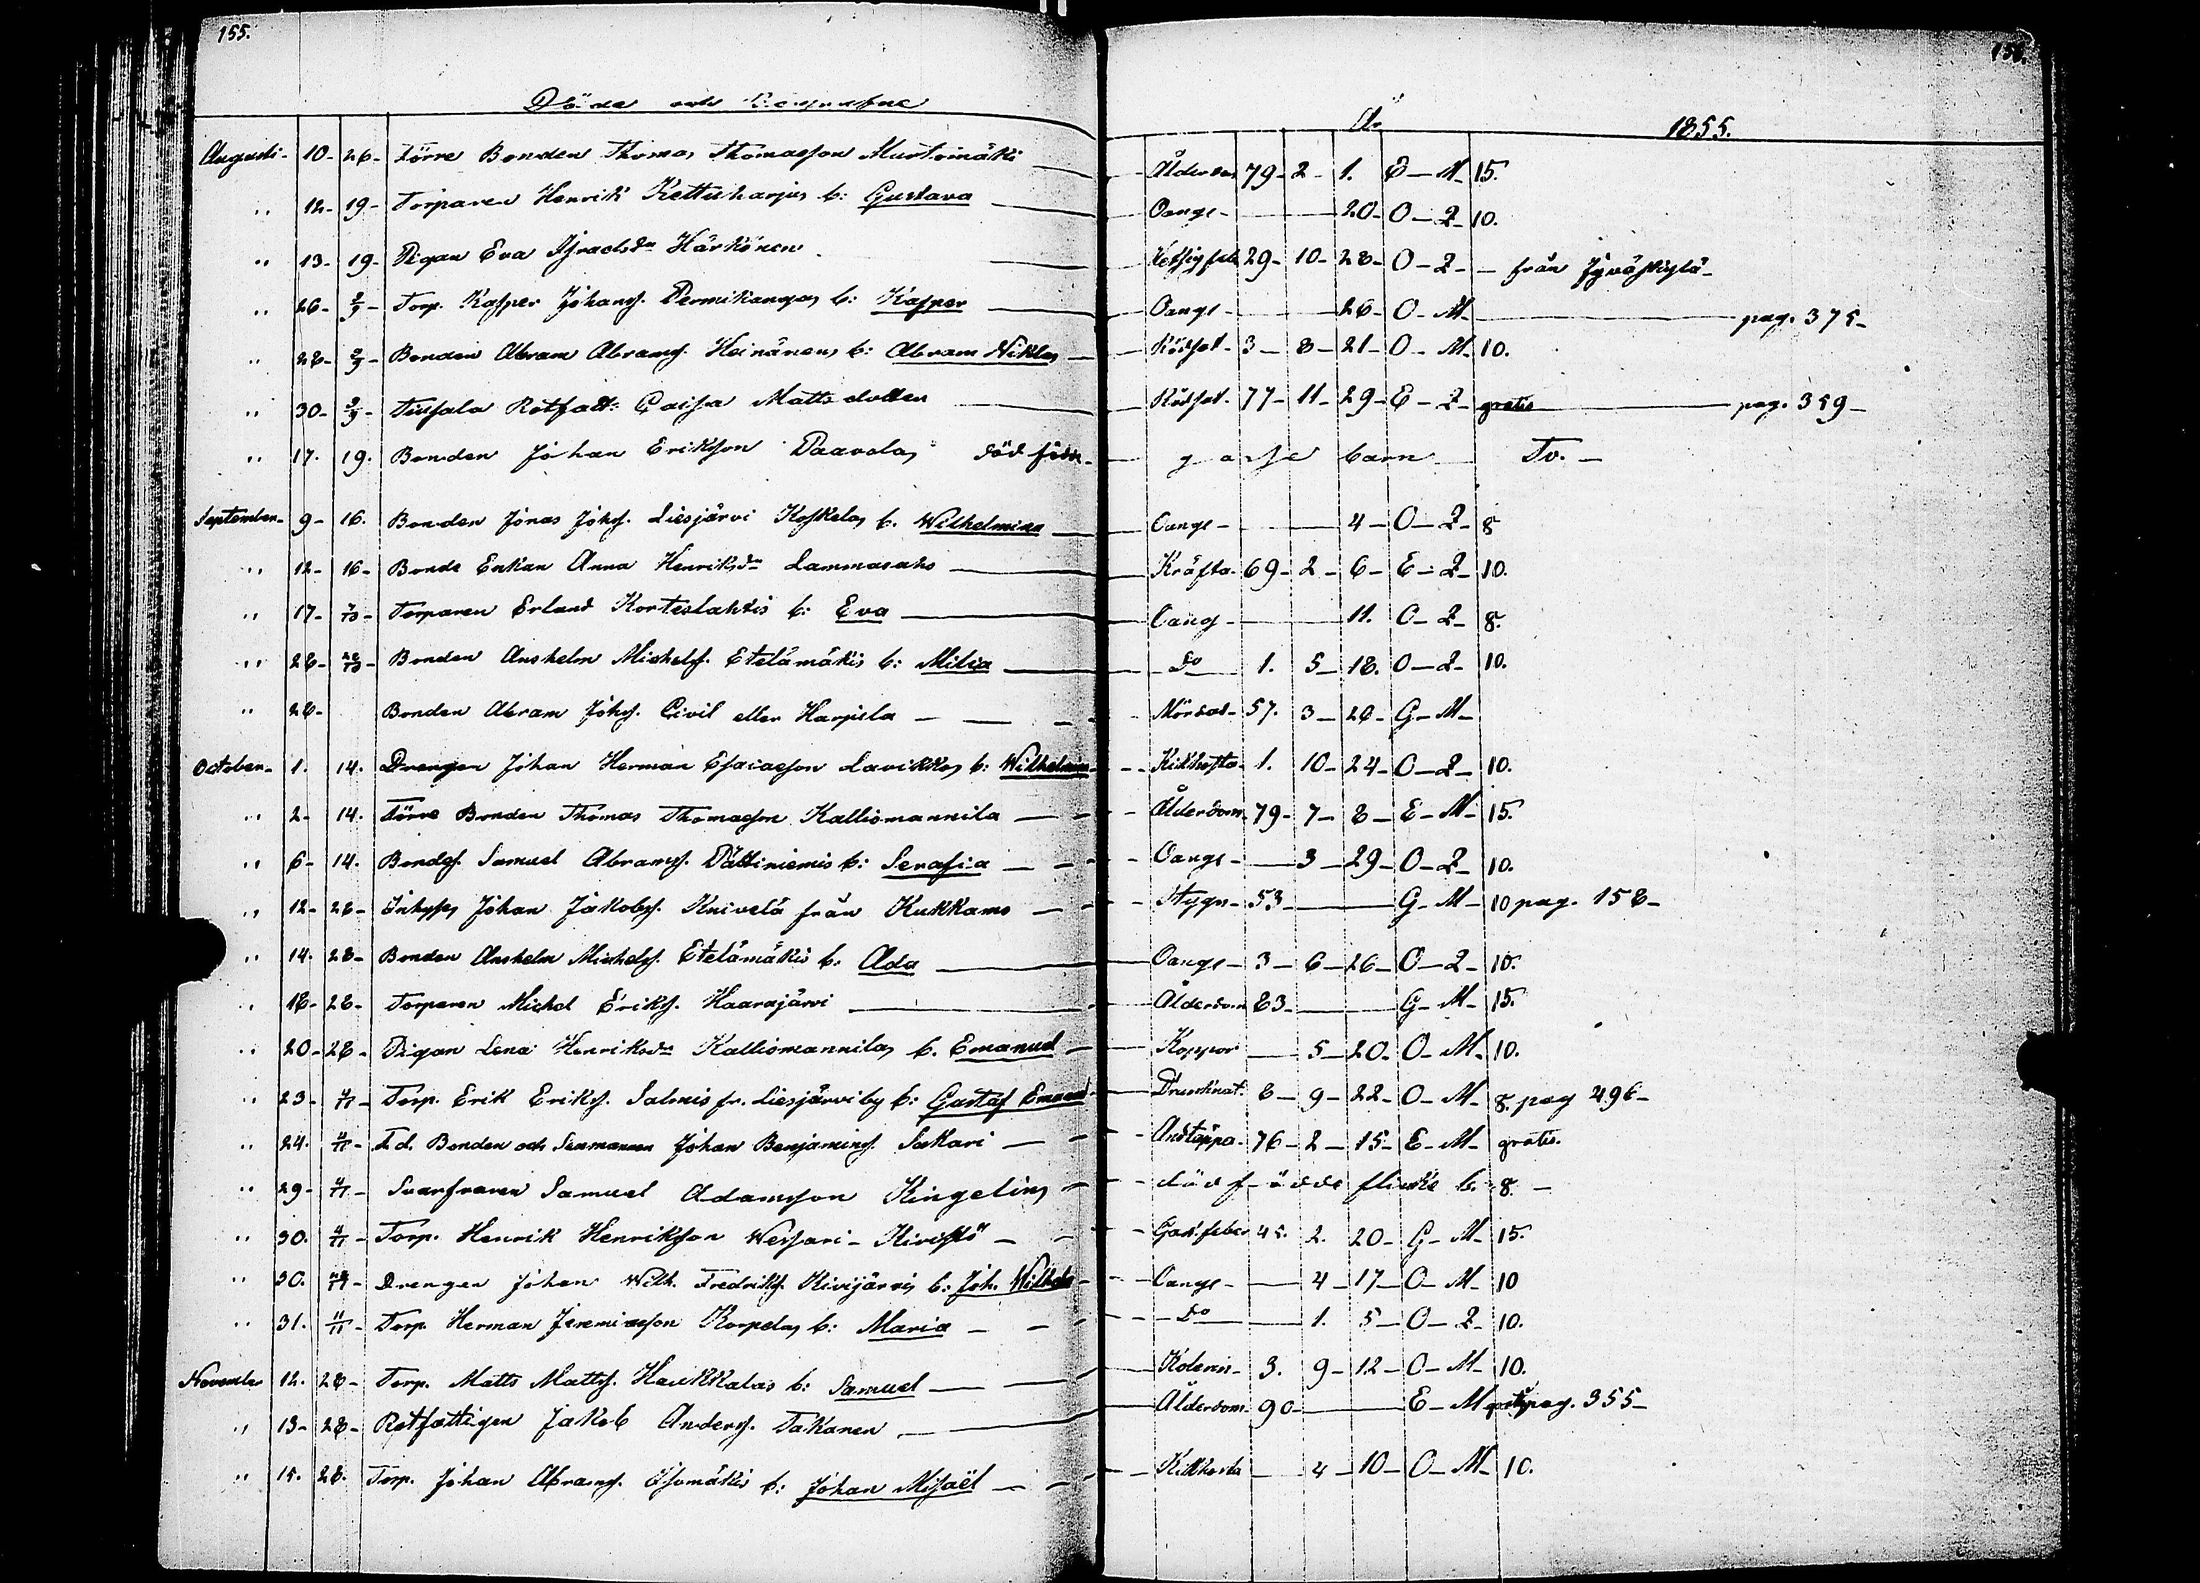 155. 156.
Döde och Begrafne År 1855.
Augusti- 10- 26- Förre Bonden Thomas Thomasson Murtomäki Ålderdom 79- 2- 1. E- M- 15.
,, 12- 19- Torparen Henrik Kettuharjus b: Gustava Oange- 20- O- 2- 10.
,, 13- 19- Pigan Eva Israelsdr Härkönen 29- 10- 28- O- 2- från Jyväskylä-
,, 26- 2/9- Torp. Kasper Johans. Permikangas b: Kasper Oange- 26- O- M- pag. 375-
,, 28- 2/9- Bonden Abram Abrams. Heinänens b: Abram Niklas Rödsot- 3- 8- 21- O- M- 10.
,, 30- 2/9- Rotfatt: Caisa Matts dotter Rödsot- 77- 11- 29- E- 2- gratis pag. 359-
,, 17. 19. Bonden Johan Eriksson Paavolas död födt gosse barn To.-
September- 9- 16. Bonden Jonas Johs. Liesjärvi Koskelas b. Wilhelmina Oange- 4- O- 2- 8
,, 12- 16- Bonde Enkan Anna Henriksdr Lammasaho Kräfta- 69- 2- 6- E- 2- 10.
,, 17- 7/10- Torparen Erland Korteslahtis b: Eva Oang- 11. O- 2- 8.
,, 28- Bonden Anshelm Michels. Etelämäkis b: Milia Do 1. 5- 18. O- 2- 10.
,, 28- Bonden Abram Johs. Civil eller Harjula Mördad- 57. 3- 28- G- M-
October- 1. 14. Drengen Johan Herman Esaiasson Lavikkos b: Wilhelmina Kikhosta- 1. 10- 24- O- 2- 10.
,, 2- 14. Förre Bonden Thomas Thomasson Kalliomannila Ålderdom- 79- 7- 8- E- M- 15.
,, 6- 14. Bonds. Samuel Abrams. Pättiniemis b: Serafia Oange- 3- 29- O- 2- 10.
,, 12- 28- Inhyses Johan Jakobs. Knivelä från Kukkamo Stygn- 53- G- M- 10 pag. 158-
,, 14. 28- Bonden Anshelm Michels. Etelämäkis b: Ada Oange- 3- 6- 26- O- 2- 10.
,, 18- 28- Torparen Michel Eriks. Haarajärvi Ålderdom 83- G- M- 15.
,, 20- 28- Pigan Lena Henriksdr Kalliomannilas b. Emanuel Koppor 5- 20- O- M- 10.
,, 23- 4/11- Torp. Erik Eriks. Salmis fr. Liesjärvi by b: Gustaf Emanuel Drunknat- 8- 9- 22- O- M- 8. pag 496-
,, 24. 4/11- F.d. Bonden och Sexmannen Johan Benjamins. Sakari Andtäppa- 76- 2- 15- E- M- gratis.
,, 29- 4/11- Svarfvaren Samuel Adamsson Kingelins död födde flicke b. 8.-
,, 30. 4/11- Torp. Henrik Henriksson Wessari- Kivistö Gast.feber 45. 2. 20- G- M- 15.
,, 30. Drengen Johan Wilh. Fredriks. Kivijärvis b: Joh. Wilhelm Oange- 4- 17- O- M- 10
,, 31. 11/11- Torp. Herman Jeremiasson Korpelas b: Maria Do 1. 5- O- 2- 10.
November 12. 28- Torp. Matts Matts. Haukkalas b: Samuel Kolerin- 3. 9- 12- O- M- 10.
,, 13- 28- Rotfattigen Jakob Anders. Takanen Ålderdom- 90- E- M pag. 355-
,, 15. 28. Torp. Johan Abrams. Isomäkis b: Johan Misaël Kikhosta 4- 10- O- M- 10.